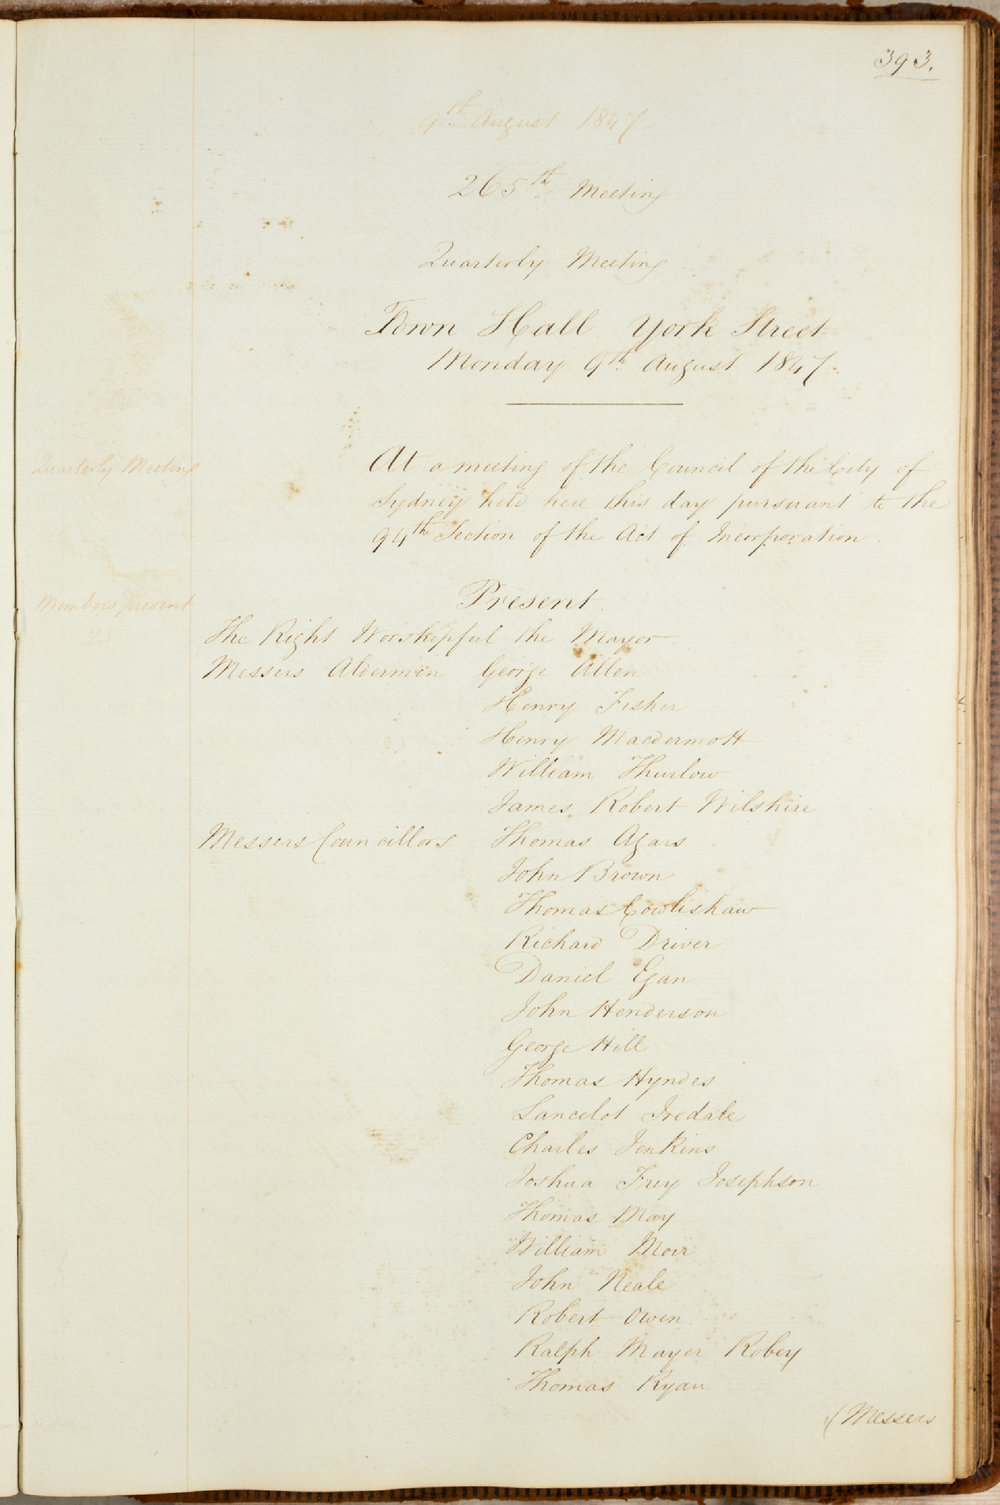 393.
9th August 1847
265th Meeting
Quarterly Meeting
Town Hall York Street
Monday 9th August 1847.
Quarterly Meeting
At a meeting of the Council of the City of
Sydney held here this day pursuant to the
94th Section of the Act of Incorporation.
Present
Members present
25
The Right Worshipful the Mayor
Messers Aldermen George Allen
Henry Fisher
Henry Macdermott
William Thurlow
James Robert Wilshire
Messers Councillors Thomas Agars
John Brown
Thomas Cowlishaw
Richard Driver
Daniel Egan
John Henderson
George Hill
Thomas Hyndes
Lancelot Iredale
Charles Jenkins
Joshua Frey Josephson
Thomas May
William Moir
John Neale
Robert Owen
Ralph Mayer Robey
Thomas Ryan
(Messers